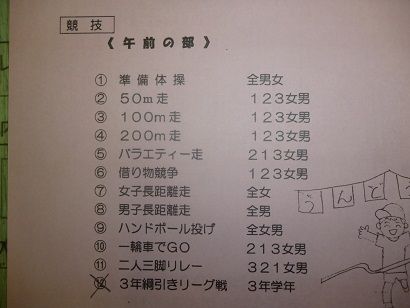 競技
《午前の部》
① 準備体操 全男女
② 50m走 123女男
③ 100m走 123女男
④ 200m走 123女男
⑤ バラエティー走 213女男
⑥ 借り物競争 123女男
⑦ 女子長距離走 全女
⑧ 男子長距離走 全男
⑨ ハンドボール投げ 全女男
⑩ 一輪車でGO 213女男
⑪ 二人三脚リレー 321女男
⑫ 3年綱引きリーグ戦 3年学年
うんど